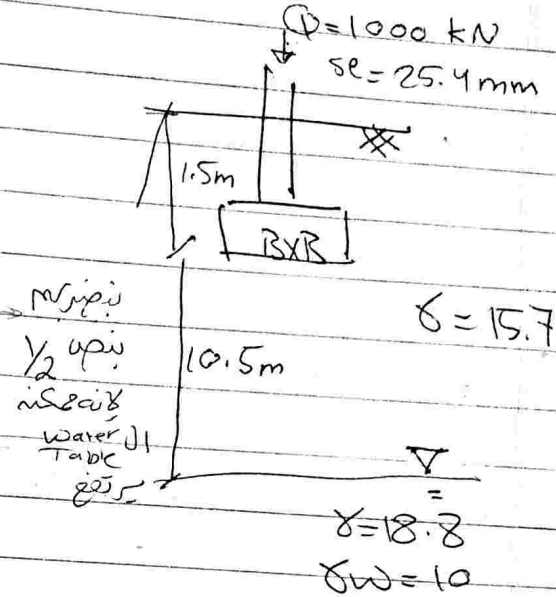 Q=1000 kN
se=25.4mm
1.5m
BXB
γ=15.7
بنضرب
بنص 1/2
10.5m
لانه ممكن
ال water
Table
يرتفع
γ=18.8
γw=10